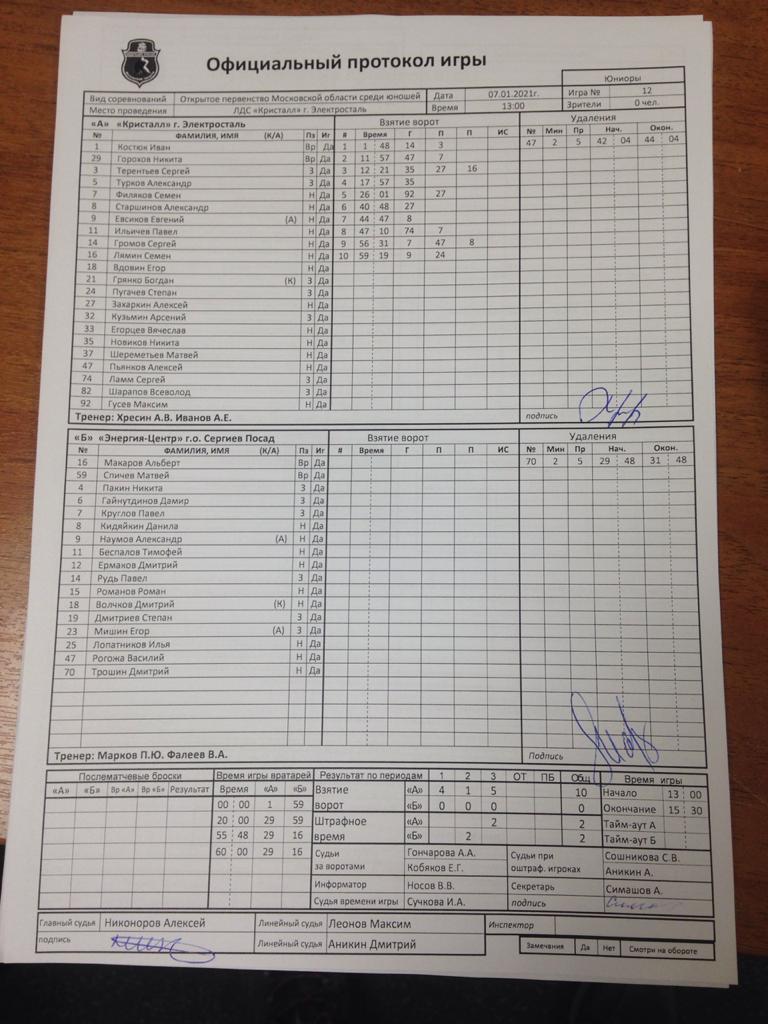 Официальный протокол игры
Юниоры
Вид соревнований Открытое первенство Московской области среди юношей Дата 07.01.2021г. Игра № 12
Место проведения ЛДС «Кристалл» г. Электросталь Время 13:00 Зрители 0 чел.
«А» «Кристалл» г. Электросталь Взятие ворот Удаления
№ ФАМИЛИЯ, ИМЯ (К/А) Пз Иг # Время Г П П ИС № Мин Пр Нач. Окон.
1 Костюк Иван Вр Да 1 1 48 14 3 47 2 5 42 04 44 04
29 Горохов Никита Вр Да 2 11 57 47 7
3 Терентьев Сергей З Да 3 12 21 35 27 16
5 Турков Александр З Да 4 17 57 35
7 Филяков Семен Н Да 5 26 01 92 27
8 Старшинов Александр З Да 6 40 48 27
9 Евсиков Евгений (А) Н Да 7 44 47 8
11 Ильичев Павел Н Да 8 47 10 74 7
14 Громов Сергей Н Да 9 56 31 7 47 8
16 Лямин Семен Н Да 10 59 19 9 24
18 Вдовин Егор Н Да
21 Грянко Богдан (К) З Да
24 Пугачев Степан З Да
27 Захаркин Алексей Н Да
32 Кузьмин Арсений З Да
33 Егорцев Вячеслав Н Да
35 Новиков Никита Н Да
37 Шереметьев Матвей Н Да
47 Пьянков Алексей Н Да
74 Ламм Сергей З Да
82 Шарапов Всеволод З Да
92 Гусев Максим Н Да
Тренер: Хресин А.В. Иванов А.Е. подпись
«Б» «Энергия-Центр» г.о. Сергиев Посад Взятие ворот Удаления
№ ФАМИЛИЯ, ИМЯ (К/А) Пз Иг # Время Г П П ИС № Мин Пр Нач. Окон.
16 Макаров Альберт Вр Да 70 2 5 29 48 31 48
59 Спичев Матвей Вр Да
4 Пакин Никита З Да
6 Гайнутдинов Дамир З Да
7 Круглов Павел З Да
8 Кидяйкин Данила Н Да
9 Наумов Александр (А) Н Да
11 Беспалов Тимофей Н Да
12 Ермаков Дмитрий Н Да
14 Рудь Павел З Да
15 Романов Роман Н Да
18 Волчков Дмитрий (К) Н Да
19 Дмитриев Степан З Да
23 Мишин Егор (А) З Да
25 Лопатников Илья Н Да
47 Рогожа Василий Н Да
70 Трошин Дмитрий Н Да
Тренер: Марков П.Ю. Фалеев В.А. Подпись
Послематчевые броски Время игры вратарей Результат по периодам 1 2 3 ОТ ПБ Общ Время игры
«А» «Б» Вр «А» Вр «Б» Результат Время «А» «Б» Взятие «А» 4 1 5 10 Начало 13 00
00 00 1 59 ворот «Б» 0 0 0 0 Окончание 15 30
20 00 29 59 Штрафное «А» 2 2 Тайм-аут А
55 48 29 16 время «Б» 2 2 Тайм-аут Б
60 00 29 16 Судьи Гончарова А.А. Судьи при Сошникова С.В.
за воротами Кобяков Е.Г. оштраф. игроках Аникин А.
Информатор Носов В.В. Секретарь Симашов А.
Судья времени игры Сучкова И.А. подпись
Главный судья Никоноров Алексей Линейный судья Леонов Максим Инспектор
подпись Линейный судья Аникин Дмитрий Замечания Да Нет Смотри на обороте